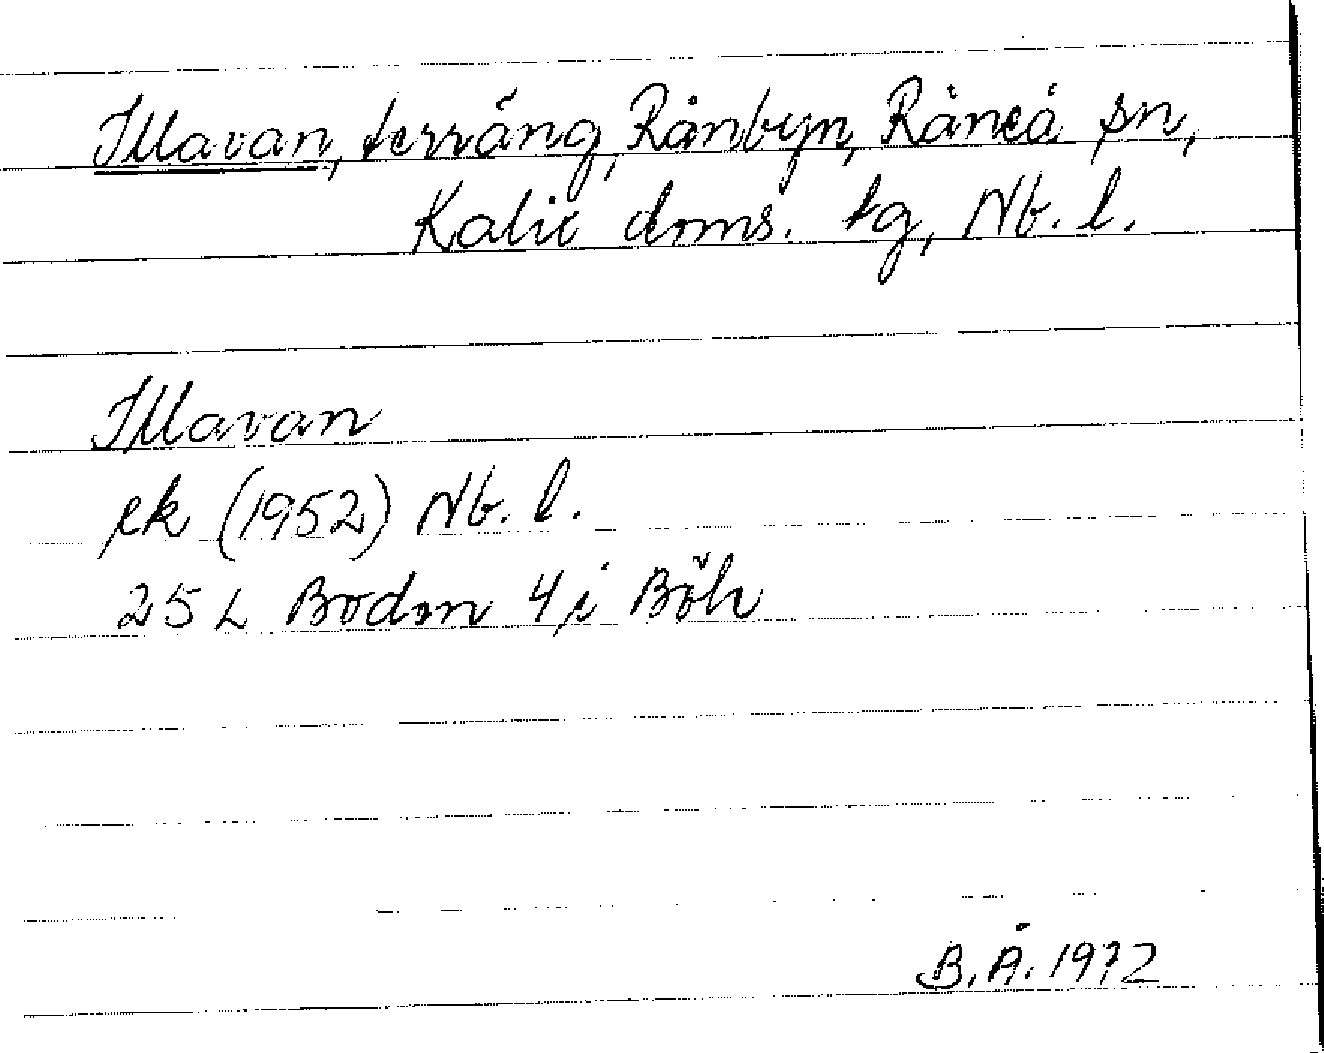 Illavan, terräng, Rånbyn, Råneå sn,
Kalix doms. tg, Nb. l.
Illavan
ek (1952) Nb. l.
25 L Boden 4 i Böle
B.Å. 1972